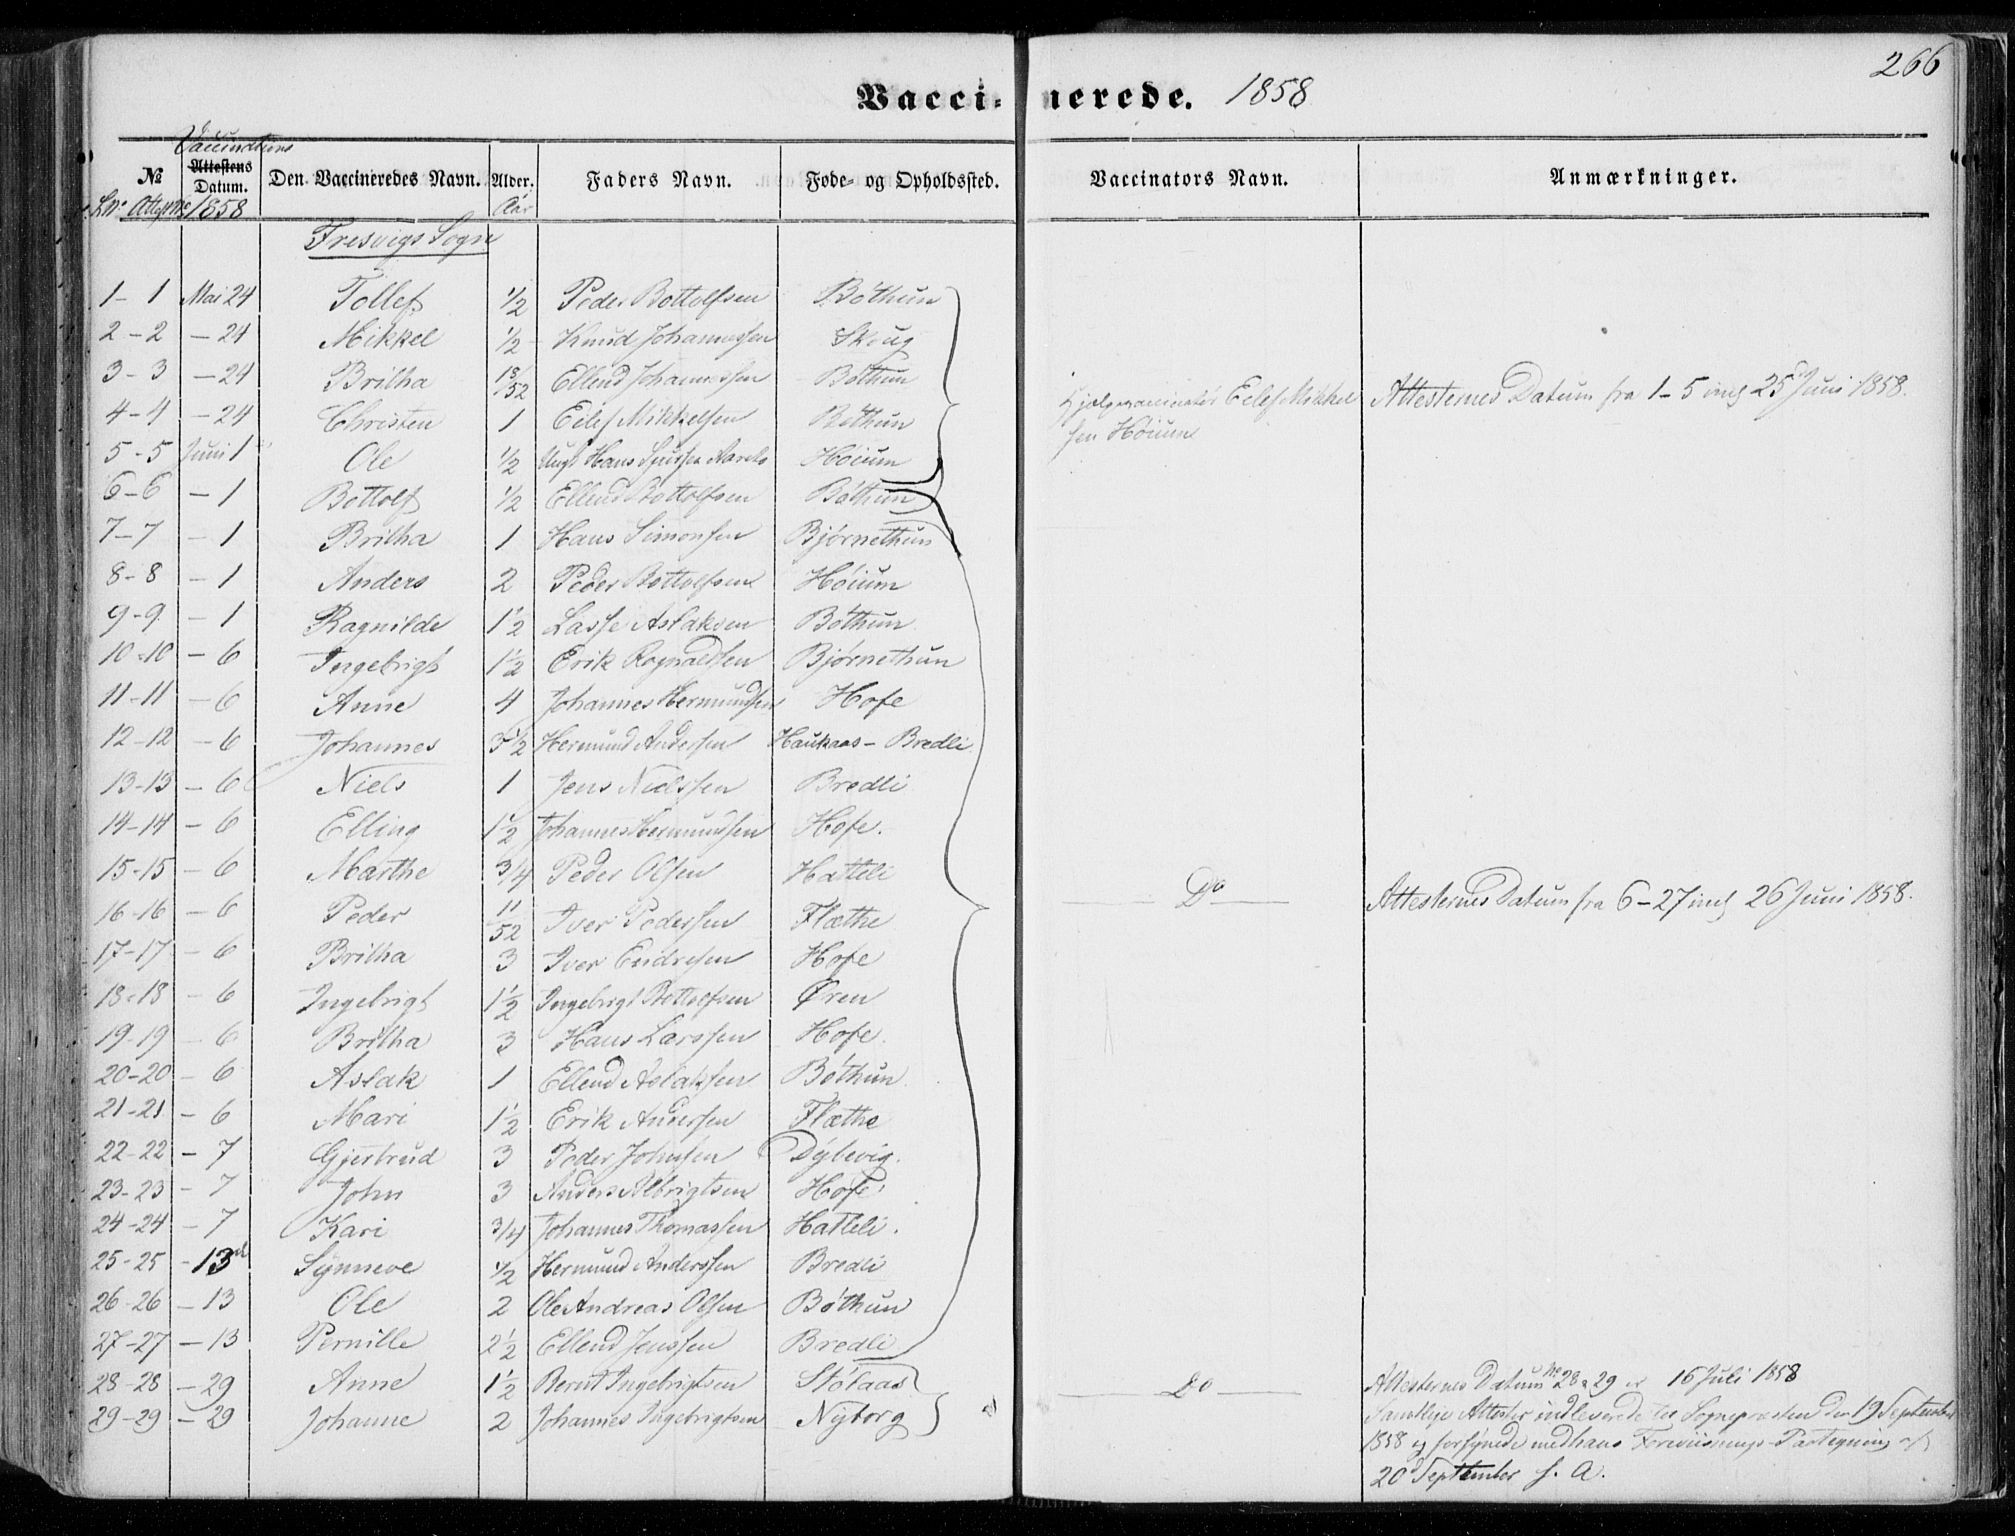 266
Vaccinerede. 1858
№ Attestens Datum. Den Vaccineredes Navn. Alder. Faders Navn. Føde- og Opholdssted. Vaccinators Navn. Anmærkninger.
1858 Aar
Fresvigs Sogn
1-1 Mai 24 Tollef 1/2 Peder Bottolfsen Bøthun
2-2 -24 Mikkel 1/2 Knud Johannessen Skoug
3-3 -24 Britha 18/52 Ellend Johannessen Bøthun
4-4 -24 Christen 1 Eilef Mikkelsen Bøthun
Hjælpevaccinatør Eilef Mikkelsen Høium
Attesternes Datum fra 1-5 incl 25 Juni 1858.
5-5 Juni 1 Ole 1/2 Ungk Hans Høium
6-6 -1 Bottolf 1/2 Ellend Bottolfsen Bøthun
7-7 -1 Britha 1 Hans Simonsen Bjørnethun
8-8 -1 Anders 2 Peder Bottolfsen Høium
9-9 -1 Ragnilde 1 1/2 Lasse Aslaksen Bøthun
10-10 -6 Ingebrigt 1 1/2 Erik Rognaldsen Bjørnethun
11-11 -6 Anne 4 Johannes Hermundsen Hofe
12-12 -6 Johannes 3 1/2 Hermund Andersen Haukaas - Bredli
13-13 -6 Niels 1 Jens Nielssen Bredli
14-14 -6 Elling 1 1/2 Johannes Hermundsen Hofe.
15-15 -6 Marthe 3/4 Peder Olsen Hatteli
Do Attesternes Datum fra 6-27 incl 26 Juni 1858.
16-16 -6 Peder 11/52 Iver Pedersen Flæthe
17-17 -6 Britha 3 Iver Endresen Hofe
18-18 -6 Ingebrigt 1 1/2 Ingebrigt Bottolfsen Øren
19-19 -6 Britha 3 Hans Larssen Hofe.
20-20 -6 Aslak 1 Ellend Aslaksen Bøthun
21-21 -6 Mari 1 1/2 Erik Andersen Flæthe
22-22 -7 Gjertrud 3 Peder Johnsen Dylevig.
23-23 -7 John 3 Anders Albrigtsen Hofe
24-24 -7 Kari 3/4 Johannes Thomassen Hatteli.
25-25 -13 Synneve 1/2 Hermund Anderssen Bredli
26-26 -13 Ole 2 Ole Andreas Olsen Bøthun
27-27 -13 Pernille 2 1/2 Ellend Jenssen Bredli
28-28 -29 Anne 1 1/2 Bernt Ingebrigtsen Stølaas
Do Attesternes Datum No 28 & 29 er 16 Juli 1858
29-29 -29 Johanne 2 Johannes Ingebrigtsen Nyborg
Samtlige Attester indleverede til Sognepræsten den 19 September
1858 og forsynede med hans Foreviisnings-Paategning af
20 September s. A.